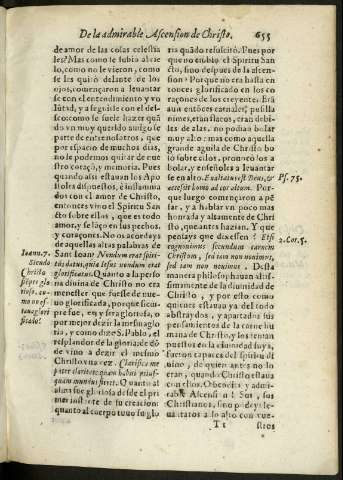 De la admirable Ascension de Christo. 655
de amor de las cosas celestia
les? Mas como se subio al cie
lo, como no le vieron, como
se les quitò delante de los
ojos, començaron a leuantar
se con el entendimiento y vo
lũtad, y a seguirle con el des-
seo: como se suele hazer quãdo
vn muy querido amigo se
parte de entre nosotros, que
por espacio de muchos dias,
no le podemos quitar de nue
stro coraçõ, y memoria. Pues
quando assi estauan los Apo
stoles dispuestos, è inflamma
dos con el amor de Christo,
entonces vino el Spiritu San
cto sobre ellos, que es todo
amor, y laços en sus pechos,
y coraçones. No os acordays
de aquellas altas palabras de
Sant Ioan? Nondum erat spiri-
tus datus, quia Iesus nondum erat
glorificatus. Quanto a la perso
na diuina de Christo no era
menester que fuesse de nue-
uo glorificada, porque siem-
pre fue, en y sera gloriosa, o
por mejor dezir la mesma glo
ria, y como dize S. Pablo, el
resplandor de la gloria: de dõ
de vino a dezir el mesmo
Christo vna vez. Clarifica me
pater claritate quam habui prius-
quam mundus fieret. Quanto al
alma fue gloriosa desde el pri
mer instante de su creacion:
quanto al cuerpo tuuo su glo
Ioann. 7.
Siendo
Christo
siẽpre glo
rioso, co
mo no es-
taua glori
ficado?
ria quãdo resuscitò. Pues por
que no embio el Spiritu San
cto, sino despues de la ascen-
sion? Porque no era hasta en
tonces glorificado en los co
raçones de los creyentes. Erã
aun entõces carnales, pesilla
nimes, eran flacos, eran debi-
les de alas, no podian bolar
muy alto: mas como aquella
grande aguila de Christo bo
lò sobre ellos, prouocò los a
bolar, y esforçolos a leuantar
se en alto. Exaltatus est Deus, &
accessit homo ad cor altum. Por-
que luego començaron a pẽ
sar, y a hablar vn poco mas
honrada y altamente de Chri
sto, que antes hazian. Y que
pensays que dixessen? Etsi
cognouimus secundum carnem
Christum, sed iam non nouimus,
sed iam non nouimus. Desta
manera philosophauan altis-
simamente de la diuinidad de
Christo, y por esto como
entonces estauan ya del todo
abstraydos, y apartados sus
pensamientos de la carne hu
mana de Christo, y los teniã
puestos en la diuinidad suya,
fueron capaces del spiritu di
uino, de quien antes no lo
eran, quando Christo estaua
con ellos. O bendita y admi-
rable Ascension! Sus, sus
Christianos, sino podeys le-
uantaros a lo alto con vue-
Ps. 75.
2. Cor. 5.
Tt stros